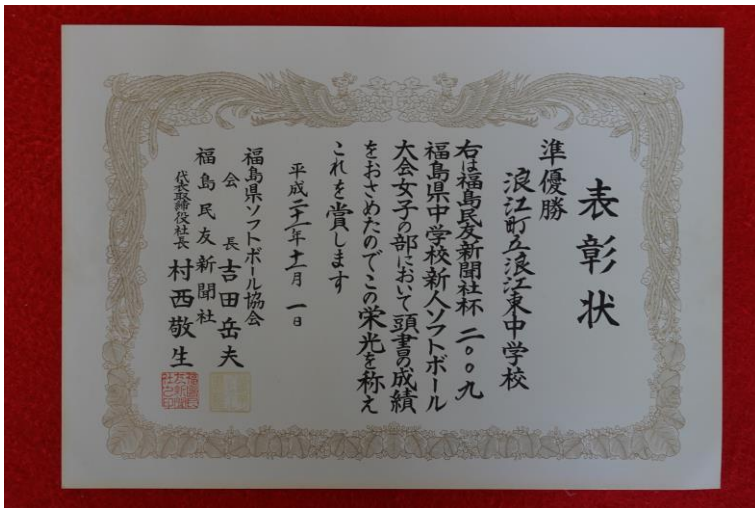 表彰状
準優勝
浪江町立浪江東中学校
右は福島民友新聞社杯 二〇〇九
福島県中学校新人ソフトボール
大会女子の部において頭書の成績
をおさめたのでこの栄光を称え
これを賞します
平成二十一年十一月一日
福島県ソフトボール協会
会長 吉田岳夫
福島民友新聞社
代表取締役社長 村西敬生